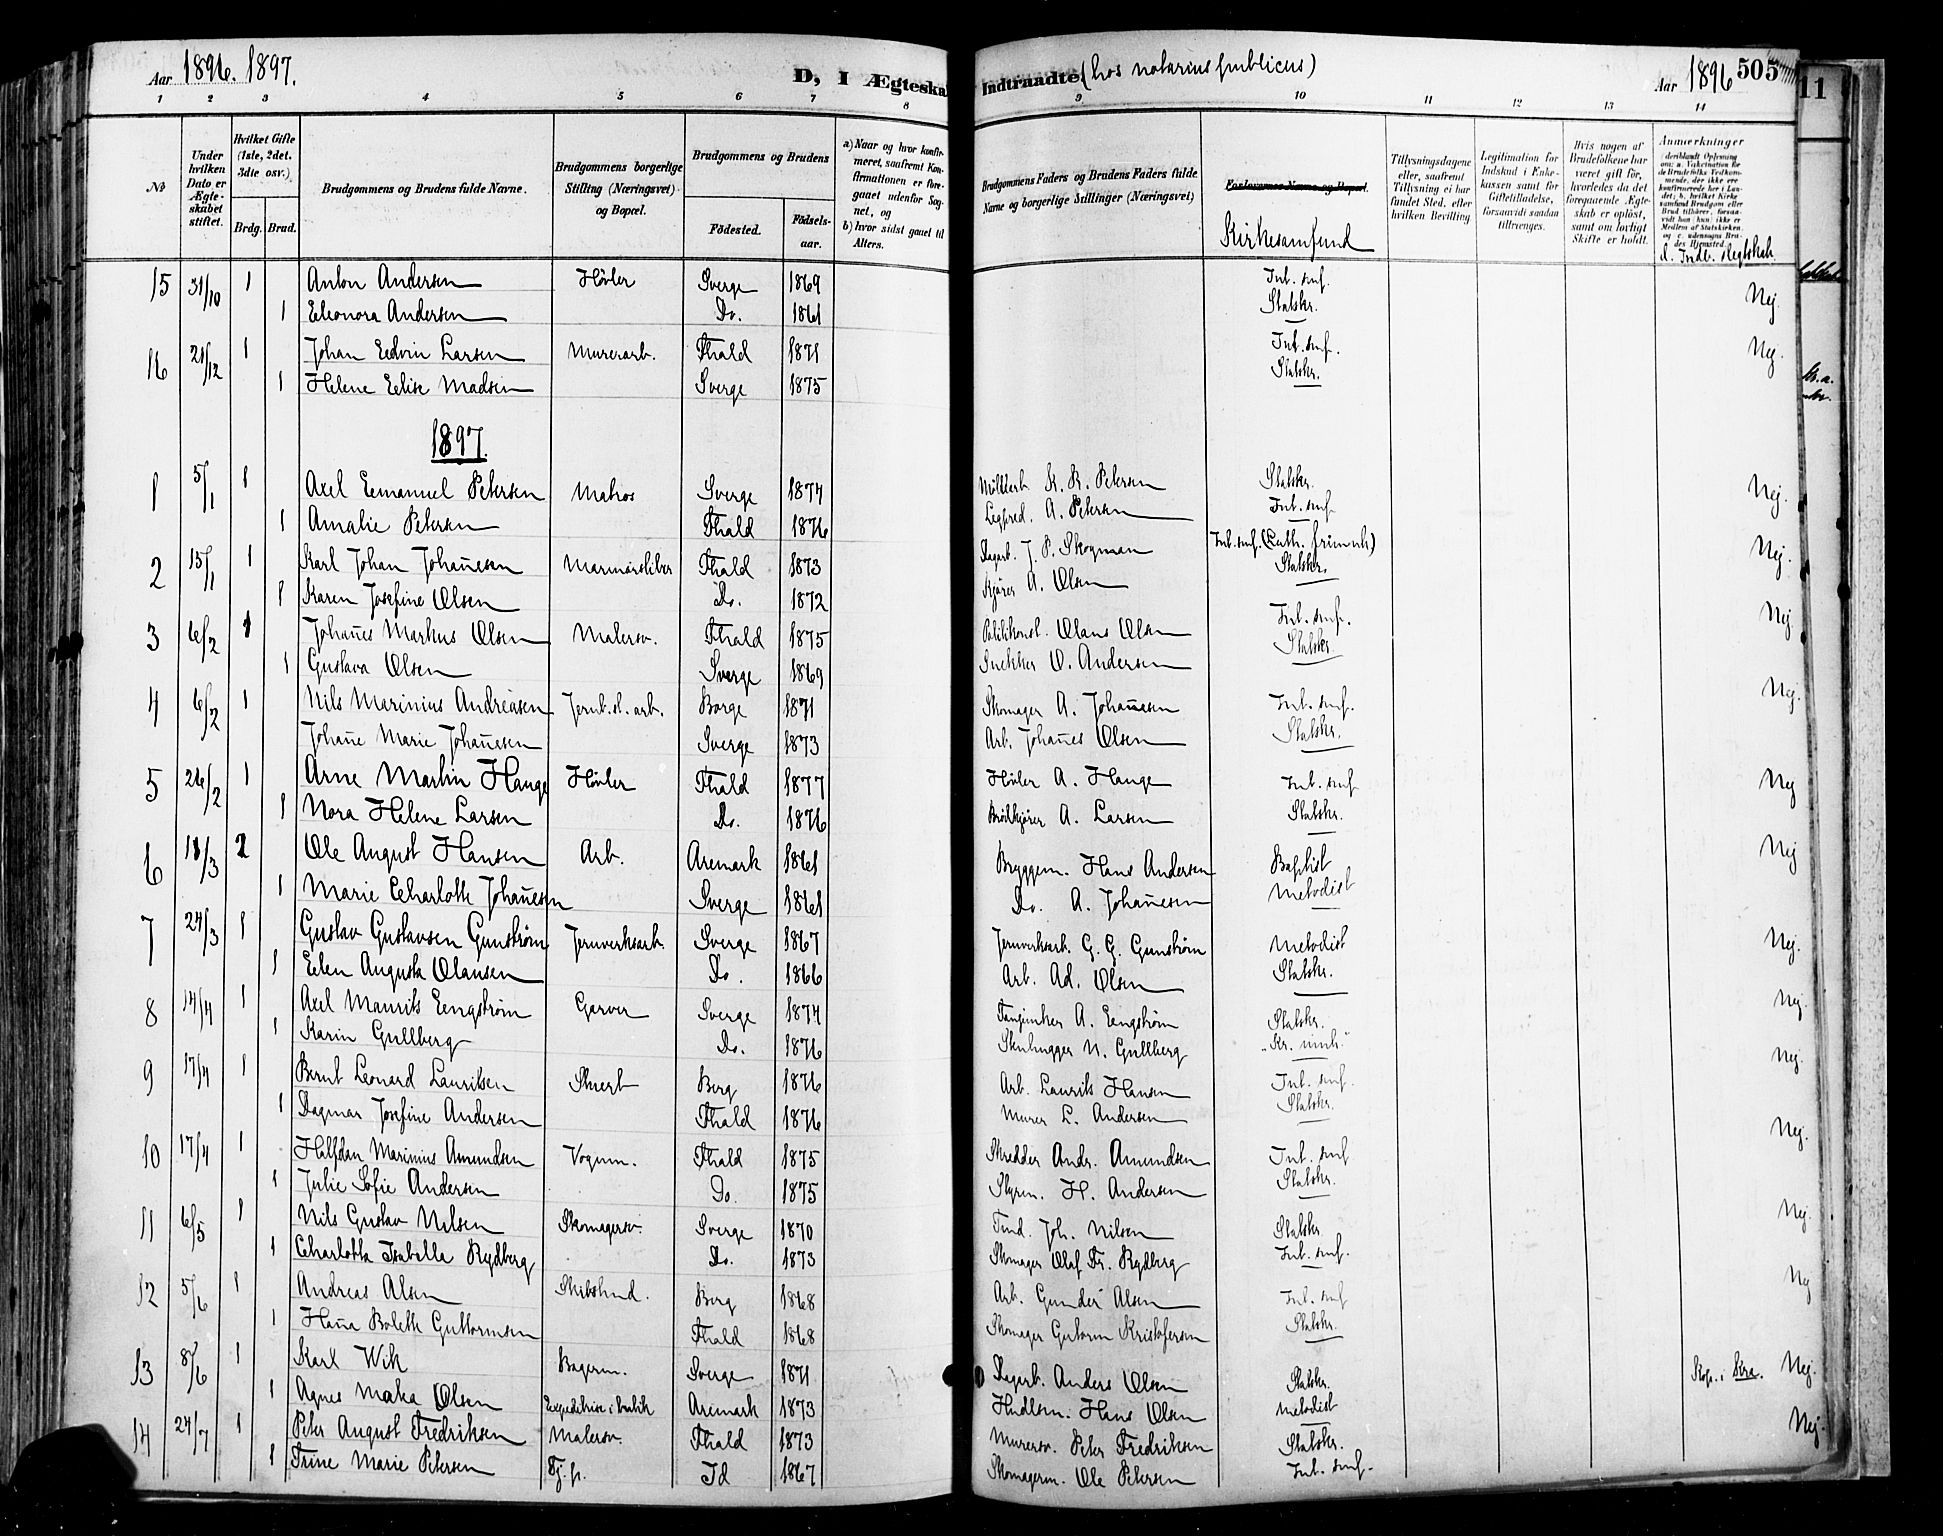 Aar 1896. 1897.
D, I Ægteskab Indtraadte (hos notarius publicus)
Aar 1896 505
11
1 2 3 4 5 6 7 8 9 10 11 12 13 14
No
Under hvilken Dato er Ægteskabet stiftet.
Hvilket Gifte (1ste, 2det, 3die osv.)
Brdg. Brud.
Brudgommens og Brudens fulde Navne.
Brudgommens borgerlige Stilling (Næringsvei) og Bopæl.
Brudgommens og Brudens
Fødested. Fødselsaar.
a) Naar og hvor konfirmeret, saafremt Konfirmationen er foregaaet udenfor Sognet, og
b) hvor sidst gaaet til Alters.
Brudgommens Faders og Brudens Faders fulde Navne og borgerlige Stillinger (Næringsvei)
Forlovernes Navne og Bopæl.
Kirkesamfund
Tillysningsdagene eller, saafremt Tillysning ei har fundet Sted, efter hvilken Bevilling
Legitimation for Indskud i Enkekassen samt for Giftetilladelse, forsaavidt saadan tiltrænges.
Hvis nogen af Brudefolkene har været gift før, hvorledes da det foregaaende Ægteskab er opløst, samt om lovligt Skifte er holdt.
Anmærkninger
15 31/10 1 Anton Andersen Høvler Sverge 1869 Int. smf. Nej.
1 Eleonora Andersen Do. 1861 Statskr.
16 21/12 1 Johan Edvin Larsen Murerarb. Fhald 1871 Int. smf. Nej.
1 Helene Elise Madsen Sverge 1875 Statskr.
1897.
1 5/1 1 Axel Emanuel Petersen Matros Sverge 1874 K. R. Petersen Statskr. Nej.
1 Amalie Petersen Fhald 1876 A. Petersen Int. smf
2 15/1 1 Karl Johan Johan̄esen Fhald 1873 Dagarb. J. P. Skogman Int. smf. (Luth. frimnh) Nej.
1 Karen Josefine Olsen Do. 1872 Kjører A. Olsen Statskr.
3 6/2 1 Johan̄es Markus Olsen Malersv. Fhald 1875 Politikonst. Olaus Olsen Int. smf. Nej.
1 Gustava Olsen Sverge 1869 Snekker O. Andersen Statskr.
4 6/2 1 Nils Marinius Andreasen Jernb.st. arb. Borge 1871 Skomager A. Johan̄esen Int. smf. Nej.
Johan̄e Marie Johan̄esen Sverge 1873 Arb. Johan̄es Olsen Statskr.
5 26/2 1 Arne Martin Hauge Høvler Fhald 1877 Høvler A. Hauge Int. smf Nej
1 Nora Helene Larsen Do. 1876 Brødkjører A. Larsen Statskr.
6 18/3 2 Ole August Hansen Arb. Aremark 1861 Bryggem. Hans Andersen Baptist Nej
1 Marie Charlotte Johan̄esen Sverge 1861 Do. A. Johan̄esen Metodist
7 24/3 1 Gustav Gustavsen Gunstrøm Jernverksarb. Sverge 1867 Jernverksarb. G. G. Gunstrøm Metodist Nej.
1 Elen Augusta Olausen Do. 1866 Arb. Ad. Olsen Statskr.
8 14/4 1 Axel Maurits Engstrøm Garver Sverge 1874 A. Engstrøm Statskr. Nej.
1 Karin Gullberg Do. 1876 Stenhugger N. Gullberg
9 17/4 1 Bernt Leonard Lauritsen Berg 1876 Arb. Laurits Hansen Int. smf. Nej.
1 Dagmar Josefine Andersen Fhald 1876 Murer L. Andersen Statskr.
10 17/4 1 Halfdan Marinius Amundsen Vognm. Fhald 1875 Skredder Andr. Amundsen Int. smf Nej.
1 Julie Sofie Andersen Do. 1875 Styrm. H. Andersen Statskr.
11 6/5 1 Nils Gustav Nilsen Skomagersv. Sverge 1870 Joh. Nilsen Statskr. Nej.
1 Charlotta Isabella Rydberg Do. 1873 Skomager Olaf Fr. Rydberg Int. smf.
12 5/6 1 Andreas Alsen Berg 1868 Arb. Gunder Alsen Int. smf Nej
1 Han̄a Bolette Guttormsen Fhald 1868 Skomager Gutorm Kristofersen Statskr.
13 8/6 1 Karl Wik Bagerm. Sverge 1871 Dagarb. Anders Olsen Statskr. Kra. Nej.
1 Agnes Olsen Aremark 1873 Hans Olsen Metodist
14 24/7 1 Peter August Fredriksen Malersv. Fhald 1873 Murersv. Peter Fredriksen Statskr. Nej.
1 Trine Marie Petersen Id 1867 Skomagerm. Ole Petersen Int. smf.